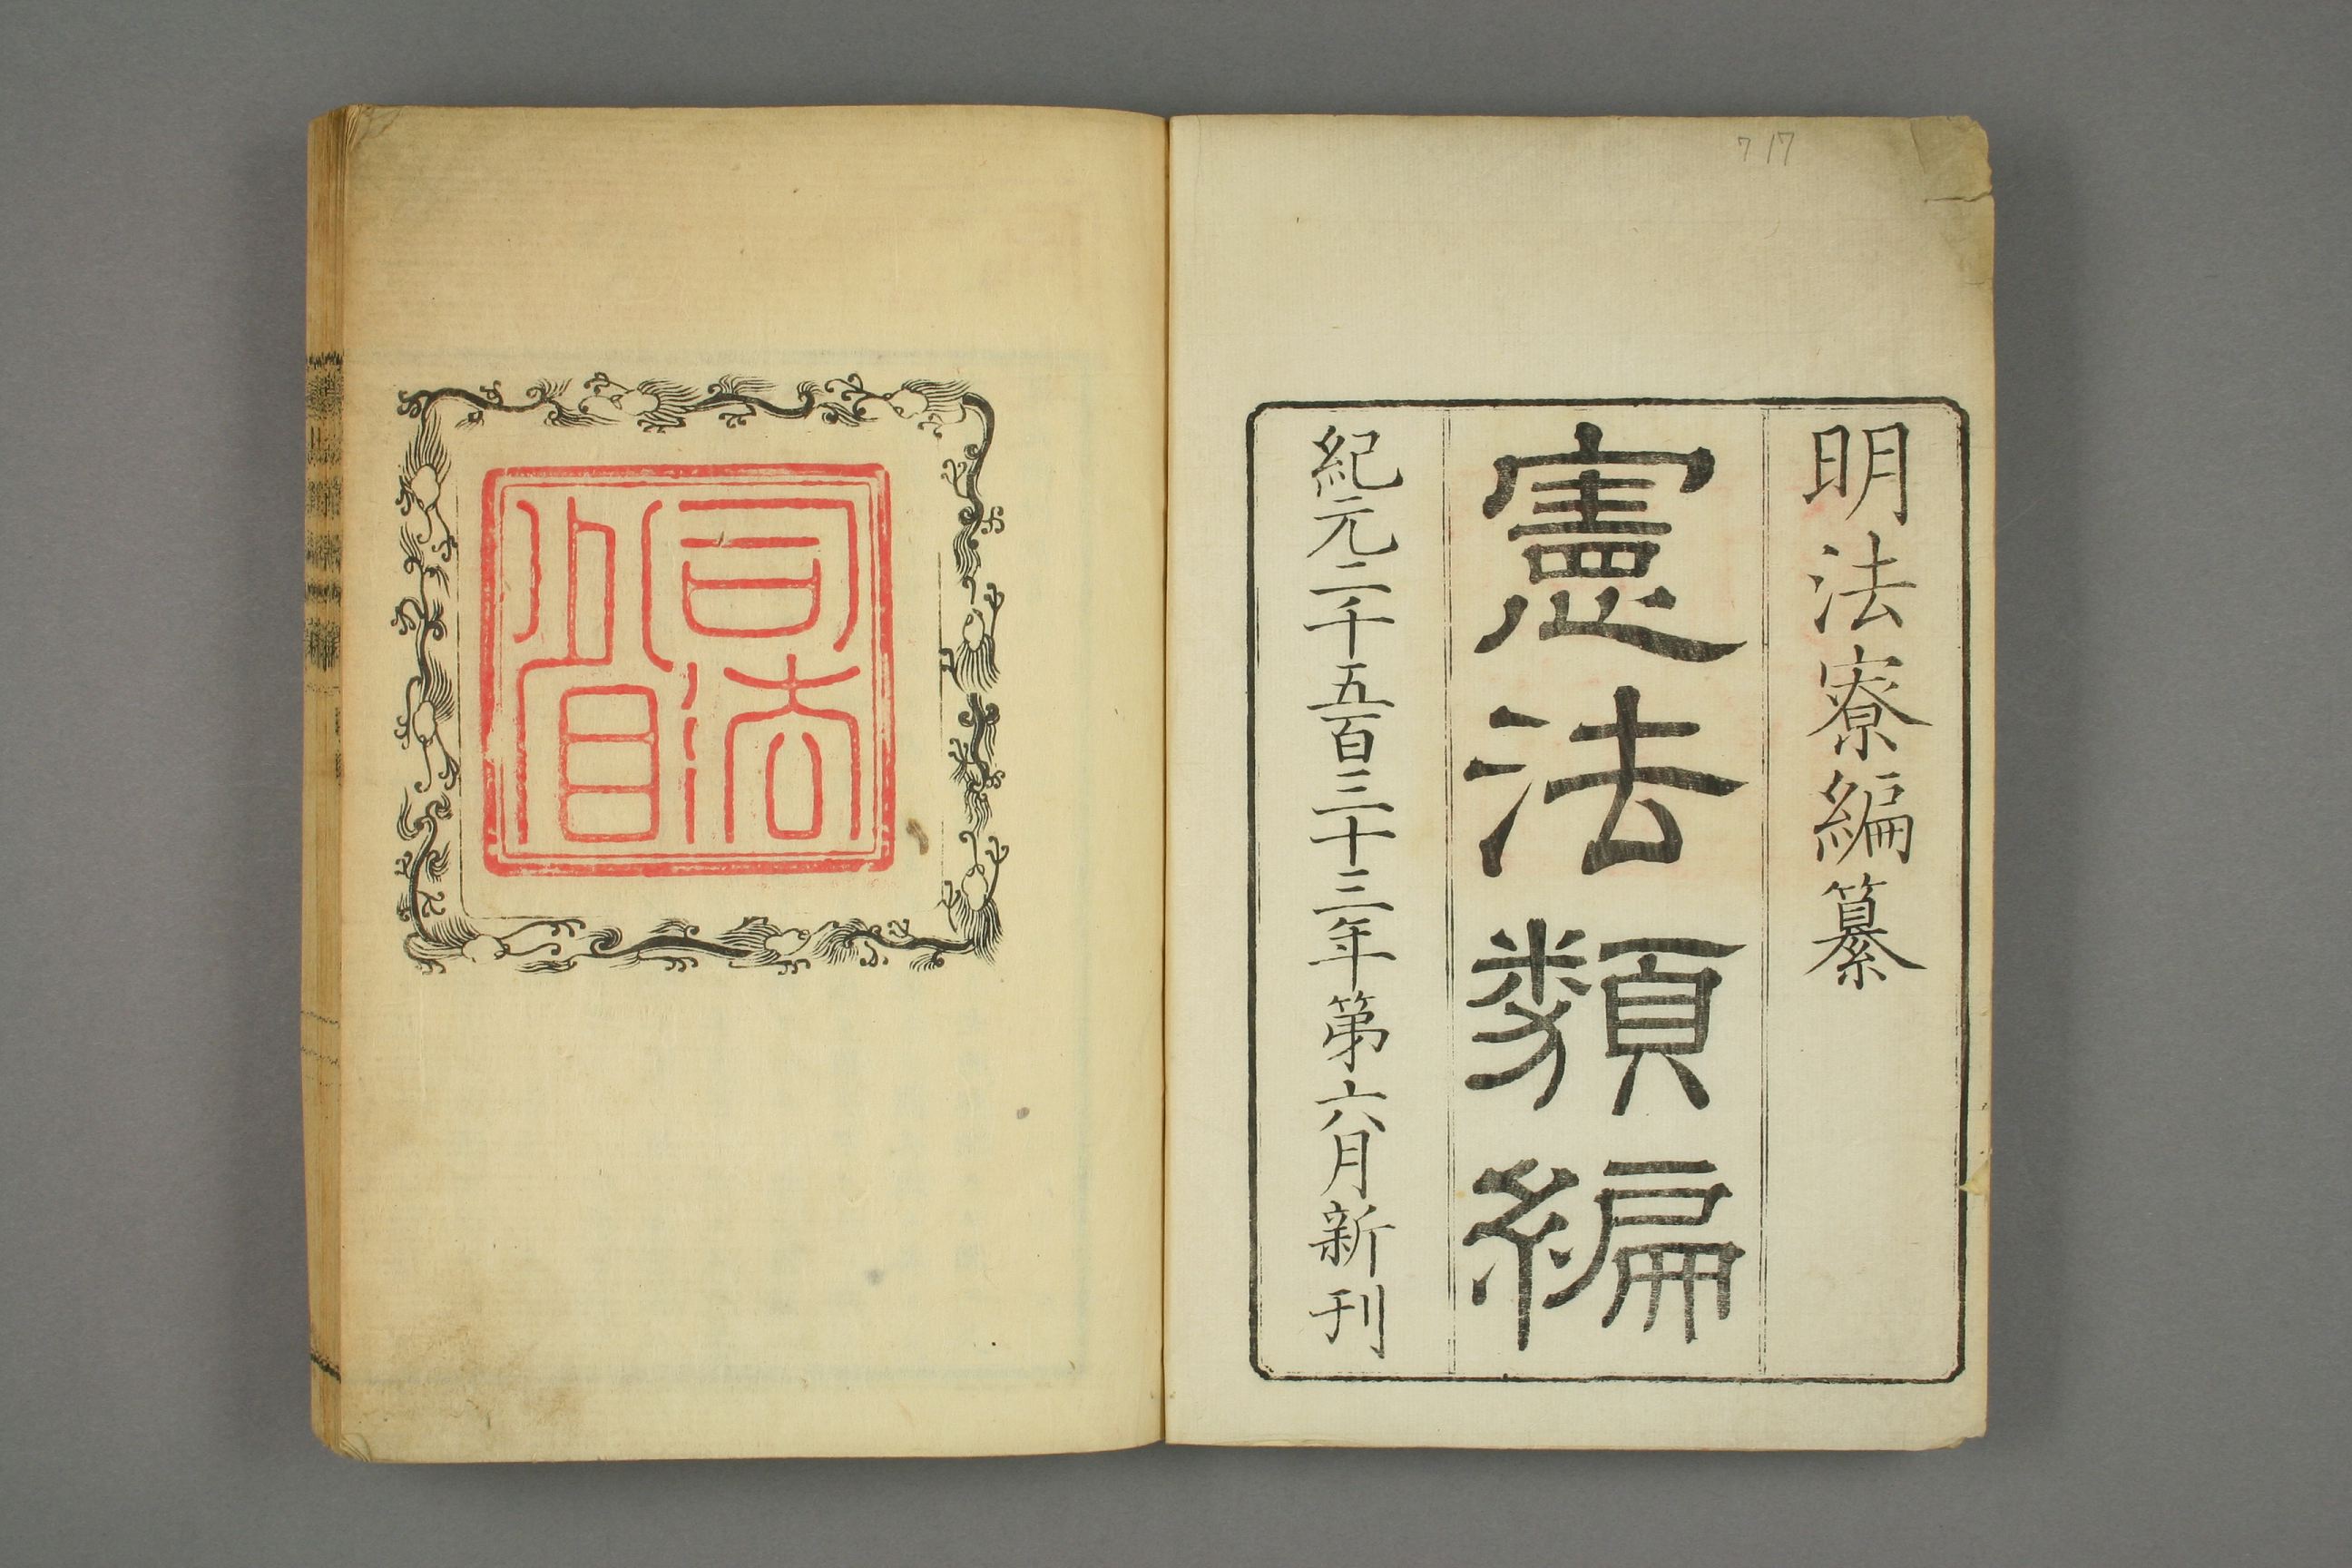 7 17
明法寮編纂
憲法類編
紀元二千五百三十三年第六月新刊
司法省